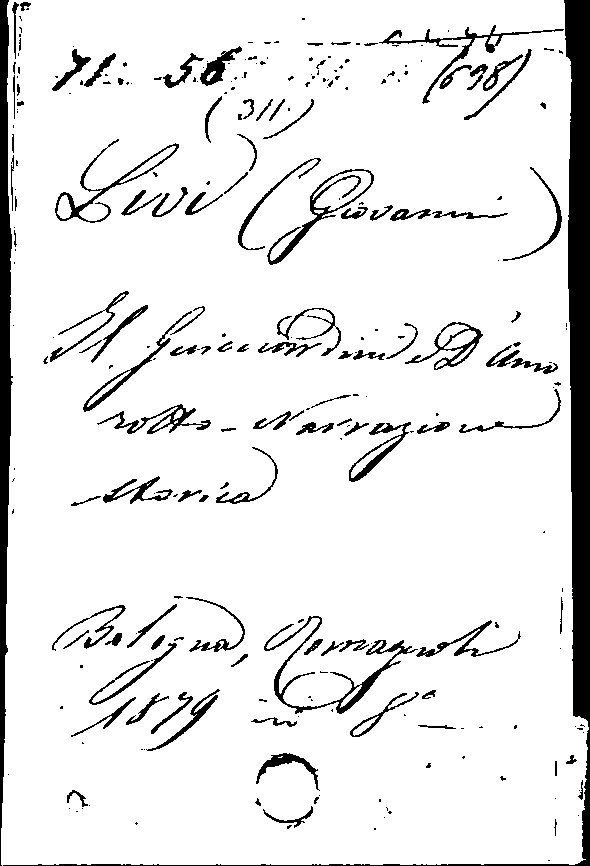 71. 56 (698)
(311.)
Livi (Giovanni)
Il Guicciardini e D'Amo
rotto - Narrazione
storica
Bologna, Romagnoli
1879 in 8°